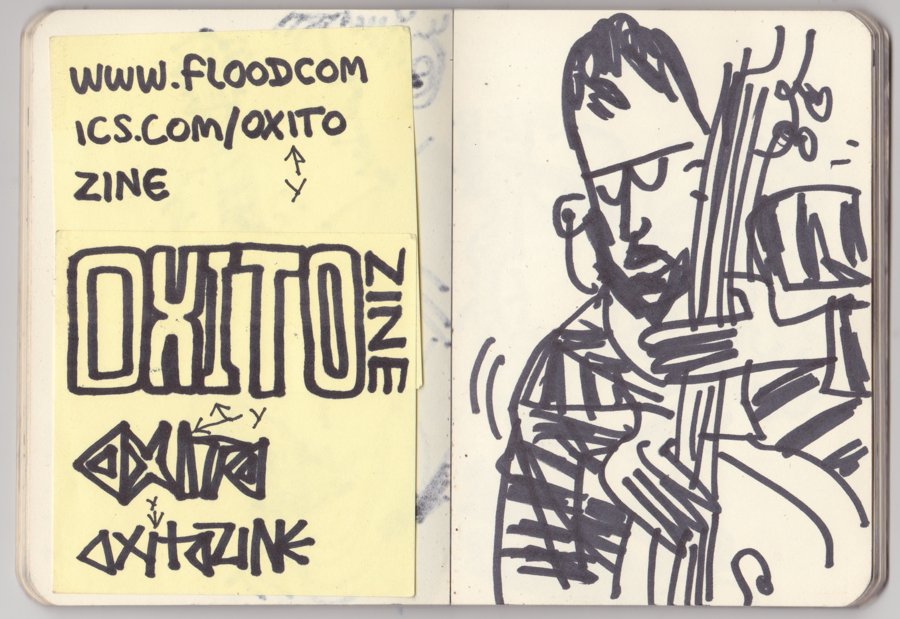 WWW.FLOODCOM
ICS.COM/OXITO
Y
ZINE
OXITO
ZINE
Y
OXITO
Y
OXITOZINE